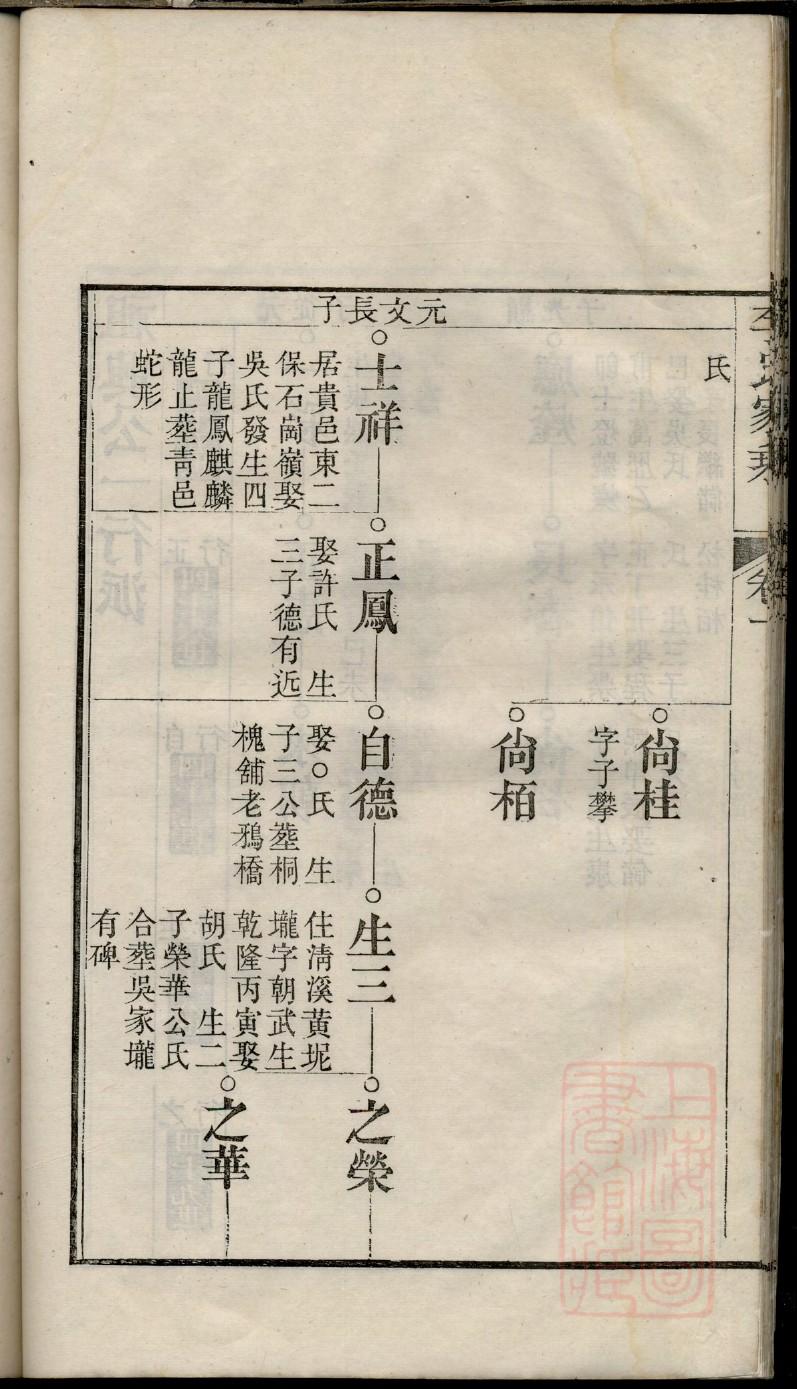 氏
尙桂
字子攀
尙栢
元文長子
士祥
居貴邑東二
保石崗嶺娶
吳氏發生四
子龍鳳麒麟
龍止塟靑邑
蛇形
正鳳
娶許氏　生
三子德有近
自德
娶○氏　生
子三公塟桐
槐舖老鴉橋
生三
住淸溪黄坭
壠字朝武生
乾隆丙寅娶
胡氏　生二
子榮華公氏
合塟吳家壠
有碑
之榮
之華
卷一
上海圖
書館藏